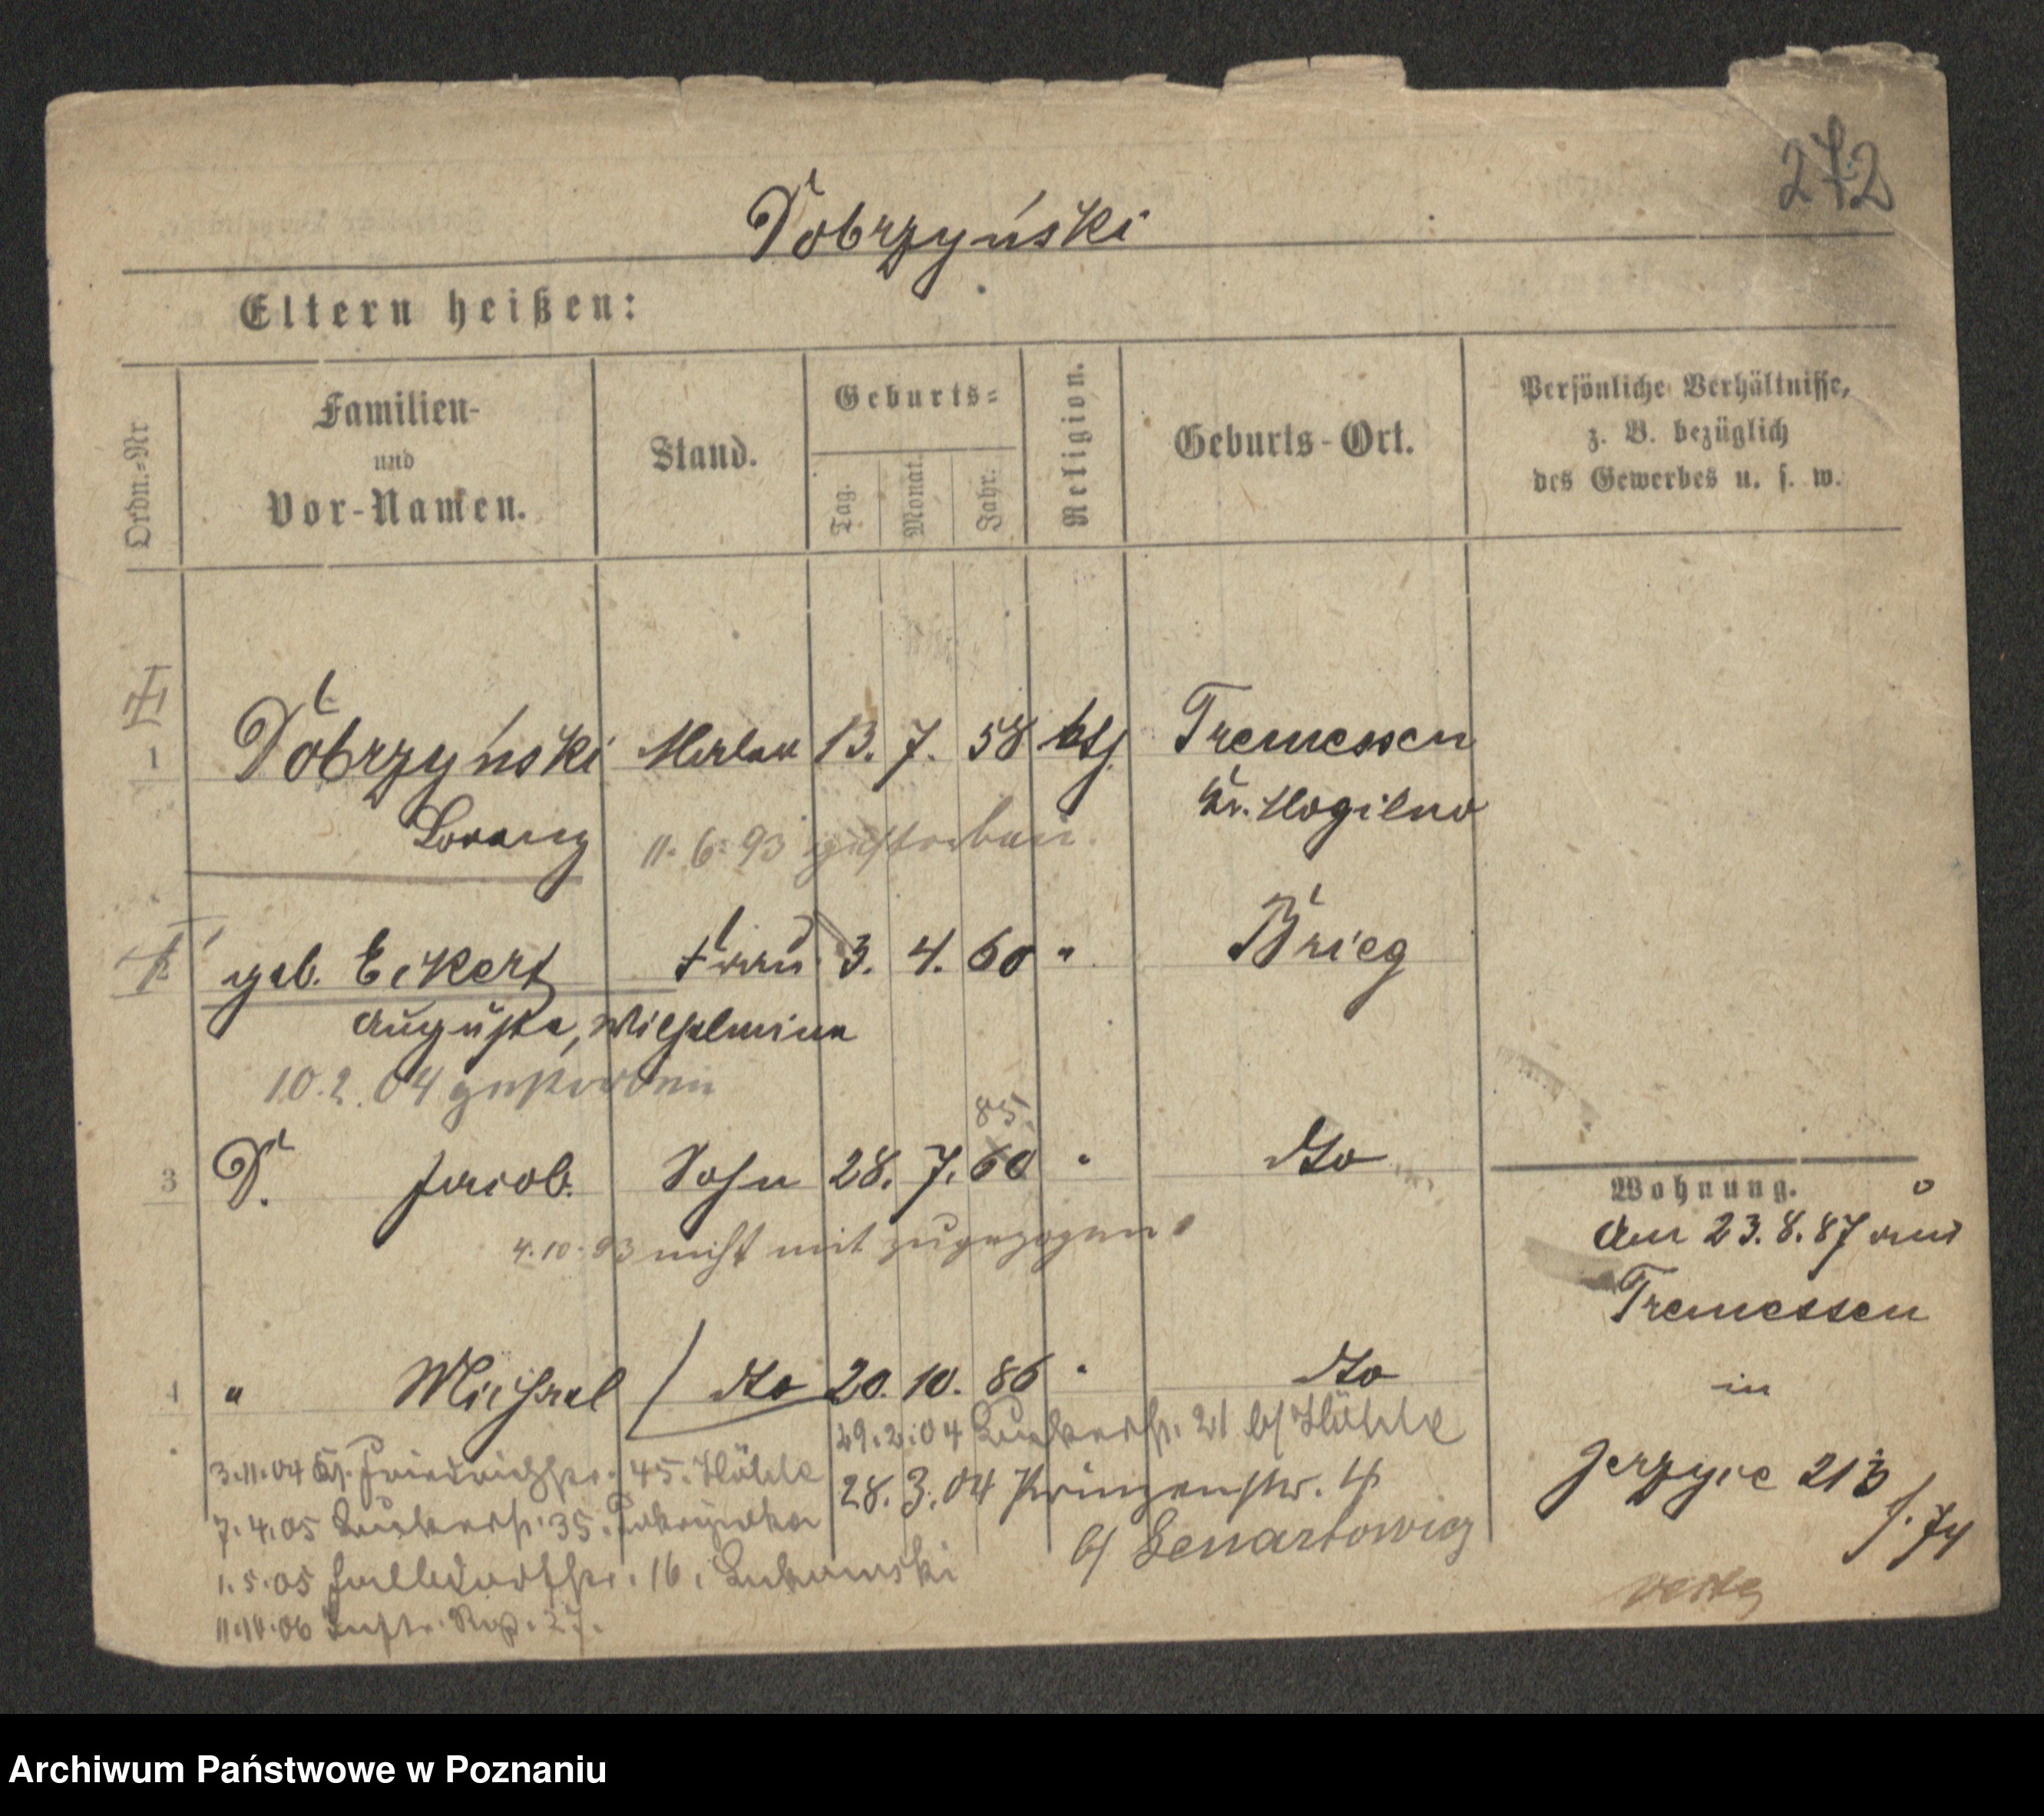 272
Dobrzyński
Eltern heißen:
Ordn.-Nr
Familien-
und
Vor-Namen.
Stand.
Geburts-
Tag.
Monat.
Jahr.
Religion.
Geburts-Ort.
Persönliche Verhältnisse,
z. B. bezüglich
des Gewerbes u. s. w.
1 Dobrzyński 13. 7. 58 Tremessen
Kr. Mogilno
Lorenz 11. 6. 93 gestorben.
geb. Eckert Frau 3. 4. 60 " Brieg
Auguste, Wilhelmine
10. 2. 04 gestorben
85.
3 D. Jacob. Sohn 28. 7. 60 " dto
4. 10. 93 nicht mit zugezogen
4 " Michael dto 20. 10. 86 " dto
29. 2. 04 21 b/
3. 11. 04 Gr. Friedrichstr. 45.
28. 3. 04 Prinzenstr. 4
b/ Lenartowicz
7. 4. 05 35.
1. 5. 05 16.
11. 10. 06 27.
Wohnung.
Am 23. 8. 87 aus
Tremessen
in
Jerzyce 213
Archiwum Państwowe w Poznaniu